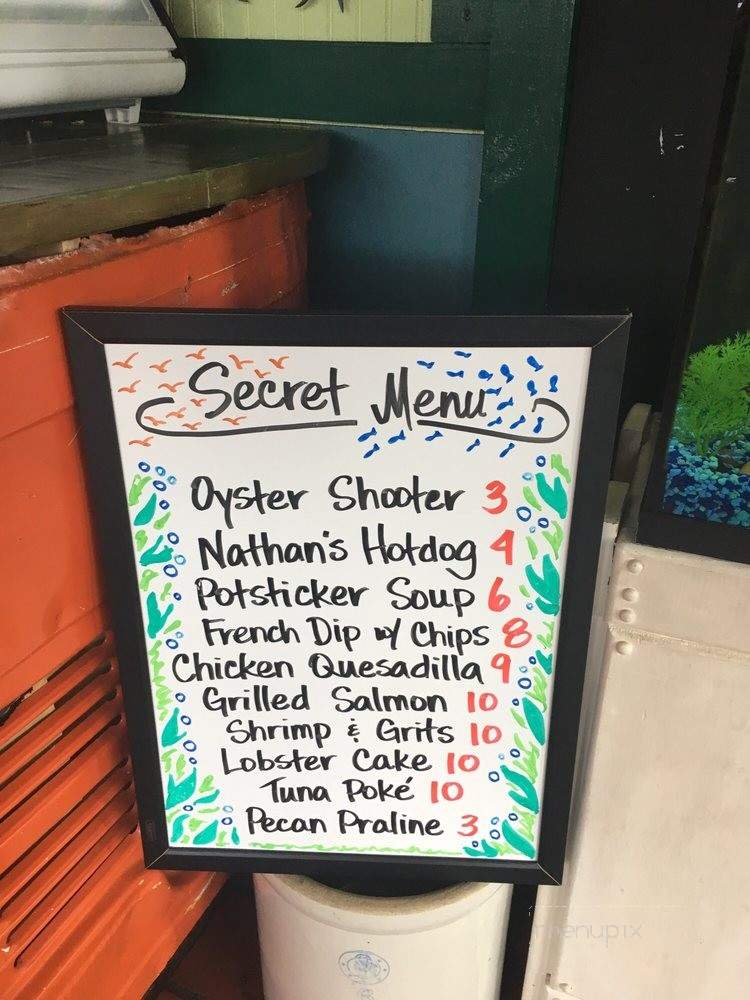 Secret Menu
Oyster Shooter 3
Nathan's Hotdog 4
Potsticker Soup 6
French Dip w/ Chips 8
Chicken Quesadilla 9
Grilled Salmon 10
Shrimp & Grits 10
Lobster Cake 10
Tuna Poké 10
Pecan Praline 3
menupix